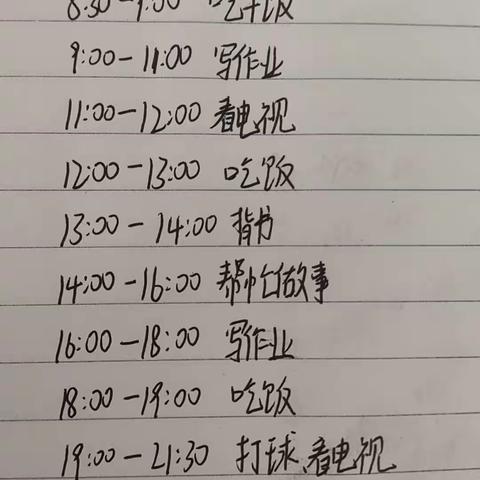 8:30-9:00 吃午饭
9:00-11:00 写作业
11:00-12:00 看电视
12:00-13:00 吃饭
13:00-14:00 背书
14:00-16:00 帮忙做故事
16:00-18:00 写作业
18:00-19:00 吃饭
19:00-21:30 打球、看电视